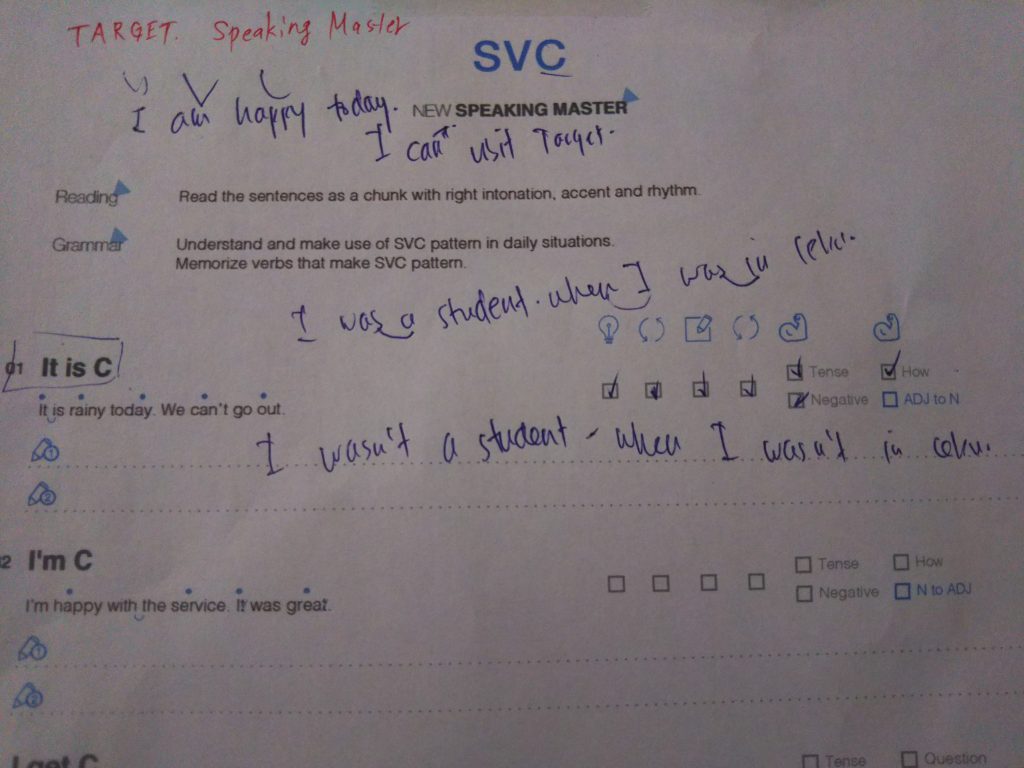 TARGET. Speaking Master
SVC
I am happy today.
NEW SPEAKING MASTER
I can't visit Target.
Reading
Read the sentences as a chunk with right intonation, accent and rhythm.
Grammar
Understand and make use of SVC pattern in daily situations.
Memorize verbs that make SVC pattern.
I was a student. when I was in
01 It is C
Tense How
It is rainy today. We can't go out.
Negative ADJ to N
1
I wasn't a student - when I wasn't in
2
2 I'm C
Tense How
I'm happy with the service. It was great.
Negative N to ADJ
1
2
I get C
Tense Question